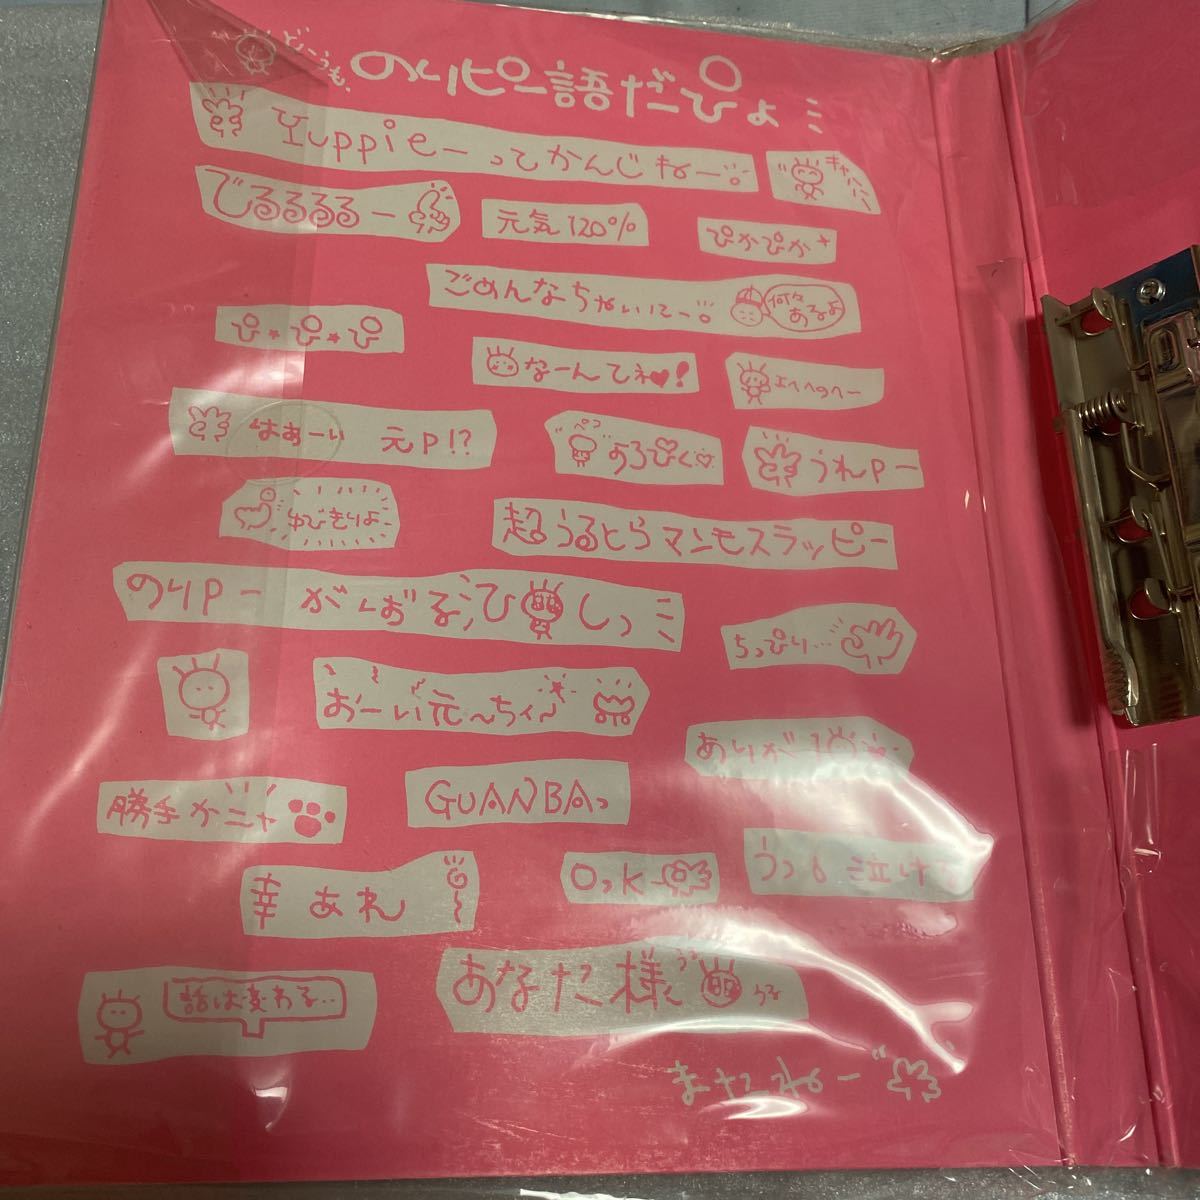 どーうも、
のりピー語だーぴょ
Yuppieーってかんじねー。
キャハハハ
でるるるるー
元気120%
ぴかぴか
ごめんなちゃいにー。
何々
あるよ
ぴ★ぴ★ぴ
なーんてネ♥!
エへへのへー
はぁーい 元P!?
"ペコ"
よろぴく♡
うれPー
ゆびきりよ
超うるとらマンモスラッピー
のりPー がんばるぴ しっ
ちっぴり…
おーい元〜ちィ〜
ありが
勝手かニャ
GUANBAっ
幸あれ
OっK
うっ泣け
話は変わる…
あなた様
うる
うる
まったねー"